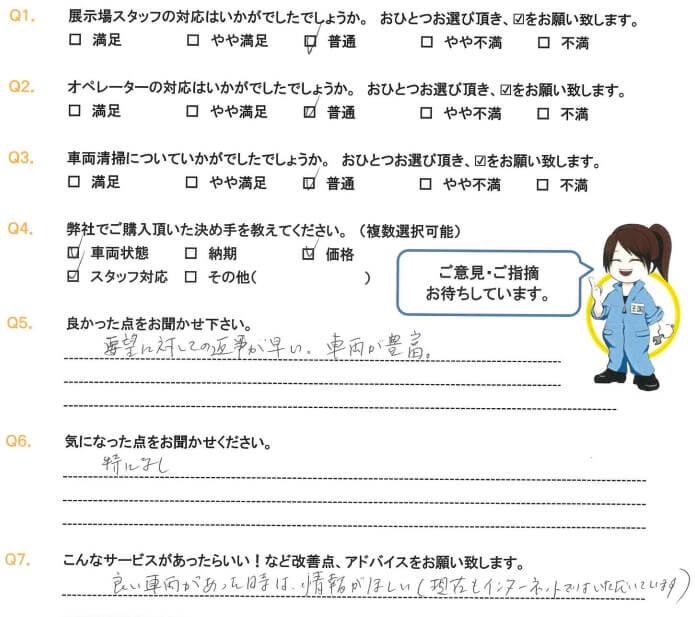 Q1. 展示場スタッフの対応はいかがでしたでしょうか。 おひとつお選び頂き、☑をお願い致します。
□ 満足 □ やや満足 ☑ 普通 □ やや不満 □ 不満
Q2. オペレーターの対応はいかがでしたでしょうか。 おひとつお選び頂き、☑をお願い致します。
□ 満足 □ やや満足 ☑ 普通 □ やや不満 □ 不満
Q3. 車両清掃についていかがでしたでしょうか。 おひとつお選び頂き、☑をお願い致します。
□ 満足 □ やや満足 ☑ 普通 □ やや不満 □ 不満
Q4. 弊社でご購入頂いた決め手を教えてください。(複数選択可能)
☑ 車両状態 □ 納期 ☑ 価格
☑ スタッフ対応 □ その他( )
ご意見・ご指摘
お待ちしています。
王国
Q5. 良かった点をお聞かせ下さい。
要望に対しての返事が早い。車両が豊富。
Q6. 気になった点をお聞かせください。
特になし
Q7. こんなサービスがあったらいい!など改善点、アドバイスをお願い致します。
良い車両があった時は、情報がほしい(現在もインターネットではいただいています)